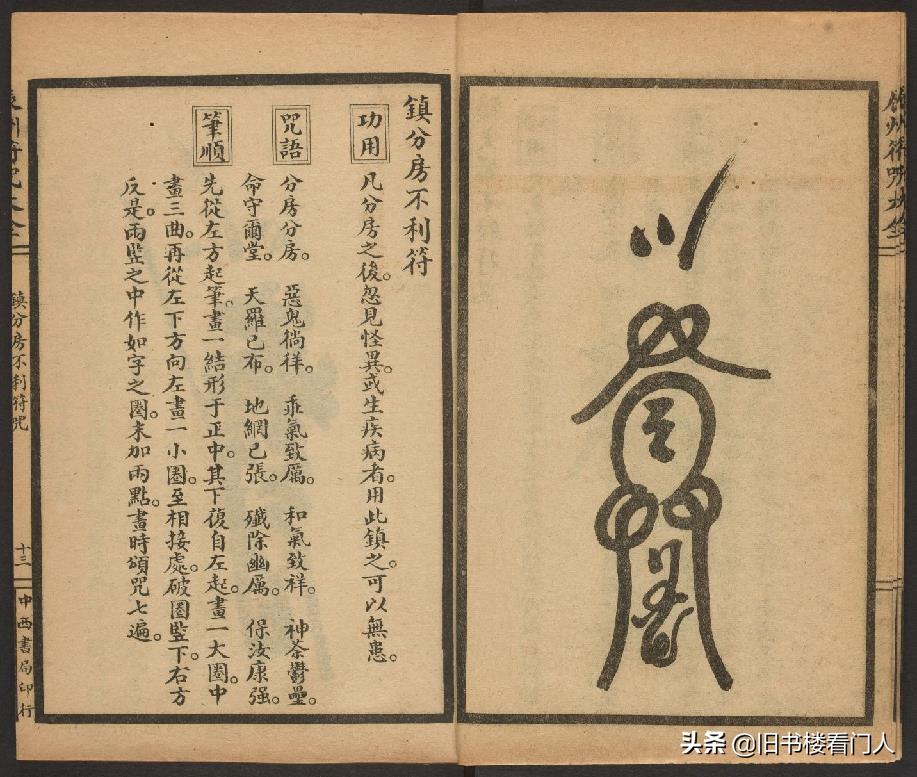 鎮分房不利符
功用
凡分房之後。忽見怪異。或生疾病者。用此鎮之。可以無患。
咒語
分房分房。 惡鬼徜徉。 乖氣致厲。 和氣致祥。 神荼鬱壘。
命守爾堂。 天羅已布。 地網已張。 殲除幽厲。 保汝康强。
筆順
先從左方起筆。畫一結形于正中。其下復自左起。畫一大圈。中
畫三曲。再從左下方向左畫一小圈。至相接處。破圈監下。右方
反是。兩監之中作如字之圈。末加兩點。畫時頌咒七遍。
鎮分房不利符咒
十三
中西書局印行
头条 @旧书楼看门人